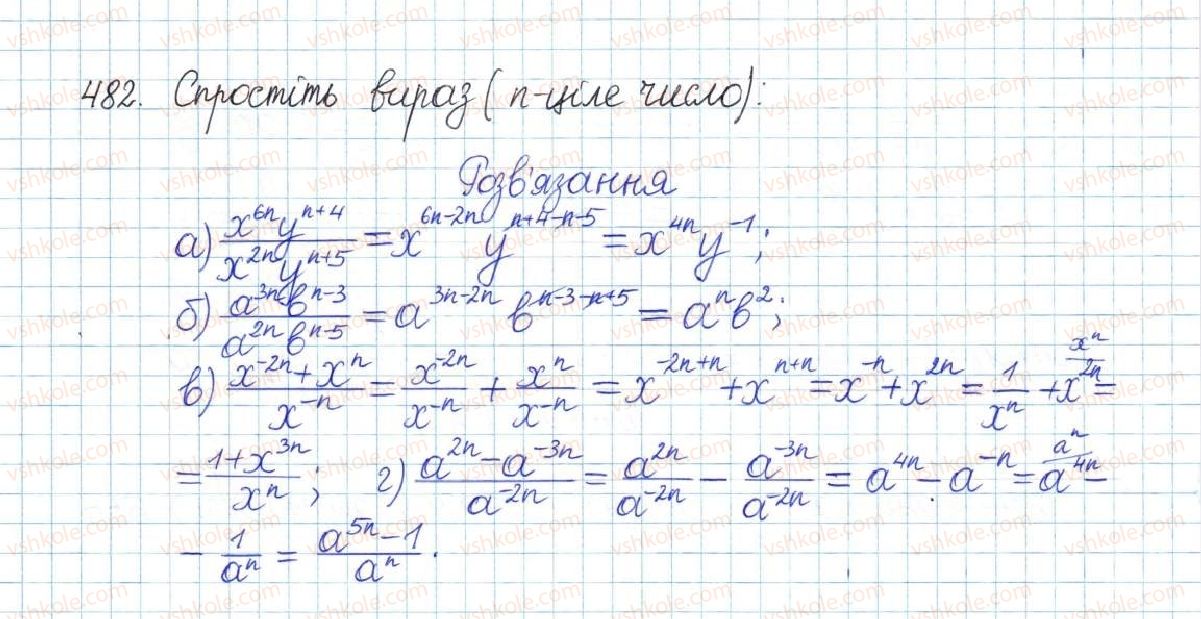 482. Спростіть вираз (n-ціле число):
Розв'язання
а) \frac{x^{6n}y^{n+4}}{x^{2n}y^{n+5}} = x^{6n-2n} y^{n+4-n-5} = x^{4n} y^{-1};
б) \frac{a^{3n}b^{n-3}}{a^{2n}b^{n-5}} = a^{3n-2n} b^{n-3-n+5} = a^n b^2;
в) \frac{x^{-2n}+x^n}{x^{-n}} = \frac{x^{-2n}}{x^{-n}} + \frac{x^n}{x^{-n}} = x^{-2n+n} + x^{n+n} = x^{-n} + x^{2n} = \frac{1}{x^n} + \overset{x^n}{x^{2n}} =
= \frac{1+x^{3n}}{x^n}; г) \frac{a^{2n}-a^{-3n}}{a^{-2n}} = \frac{a^{2n}}{a^{-2n}} - \frac{a^{-3n}}{a^{-2n}} = a^{4n} - a^{-n} = \overset{a^n}{a^{4n}} -
- \frac{1}{a^n} = \frac{a^{5n}-1}{a^n}.
vshkole.com